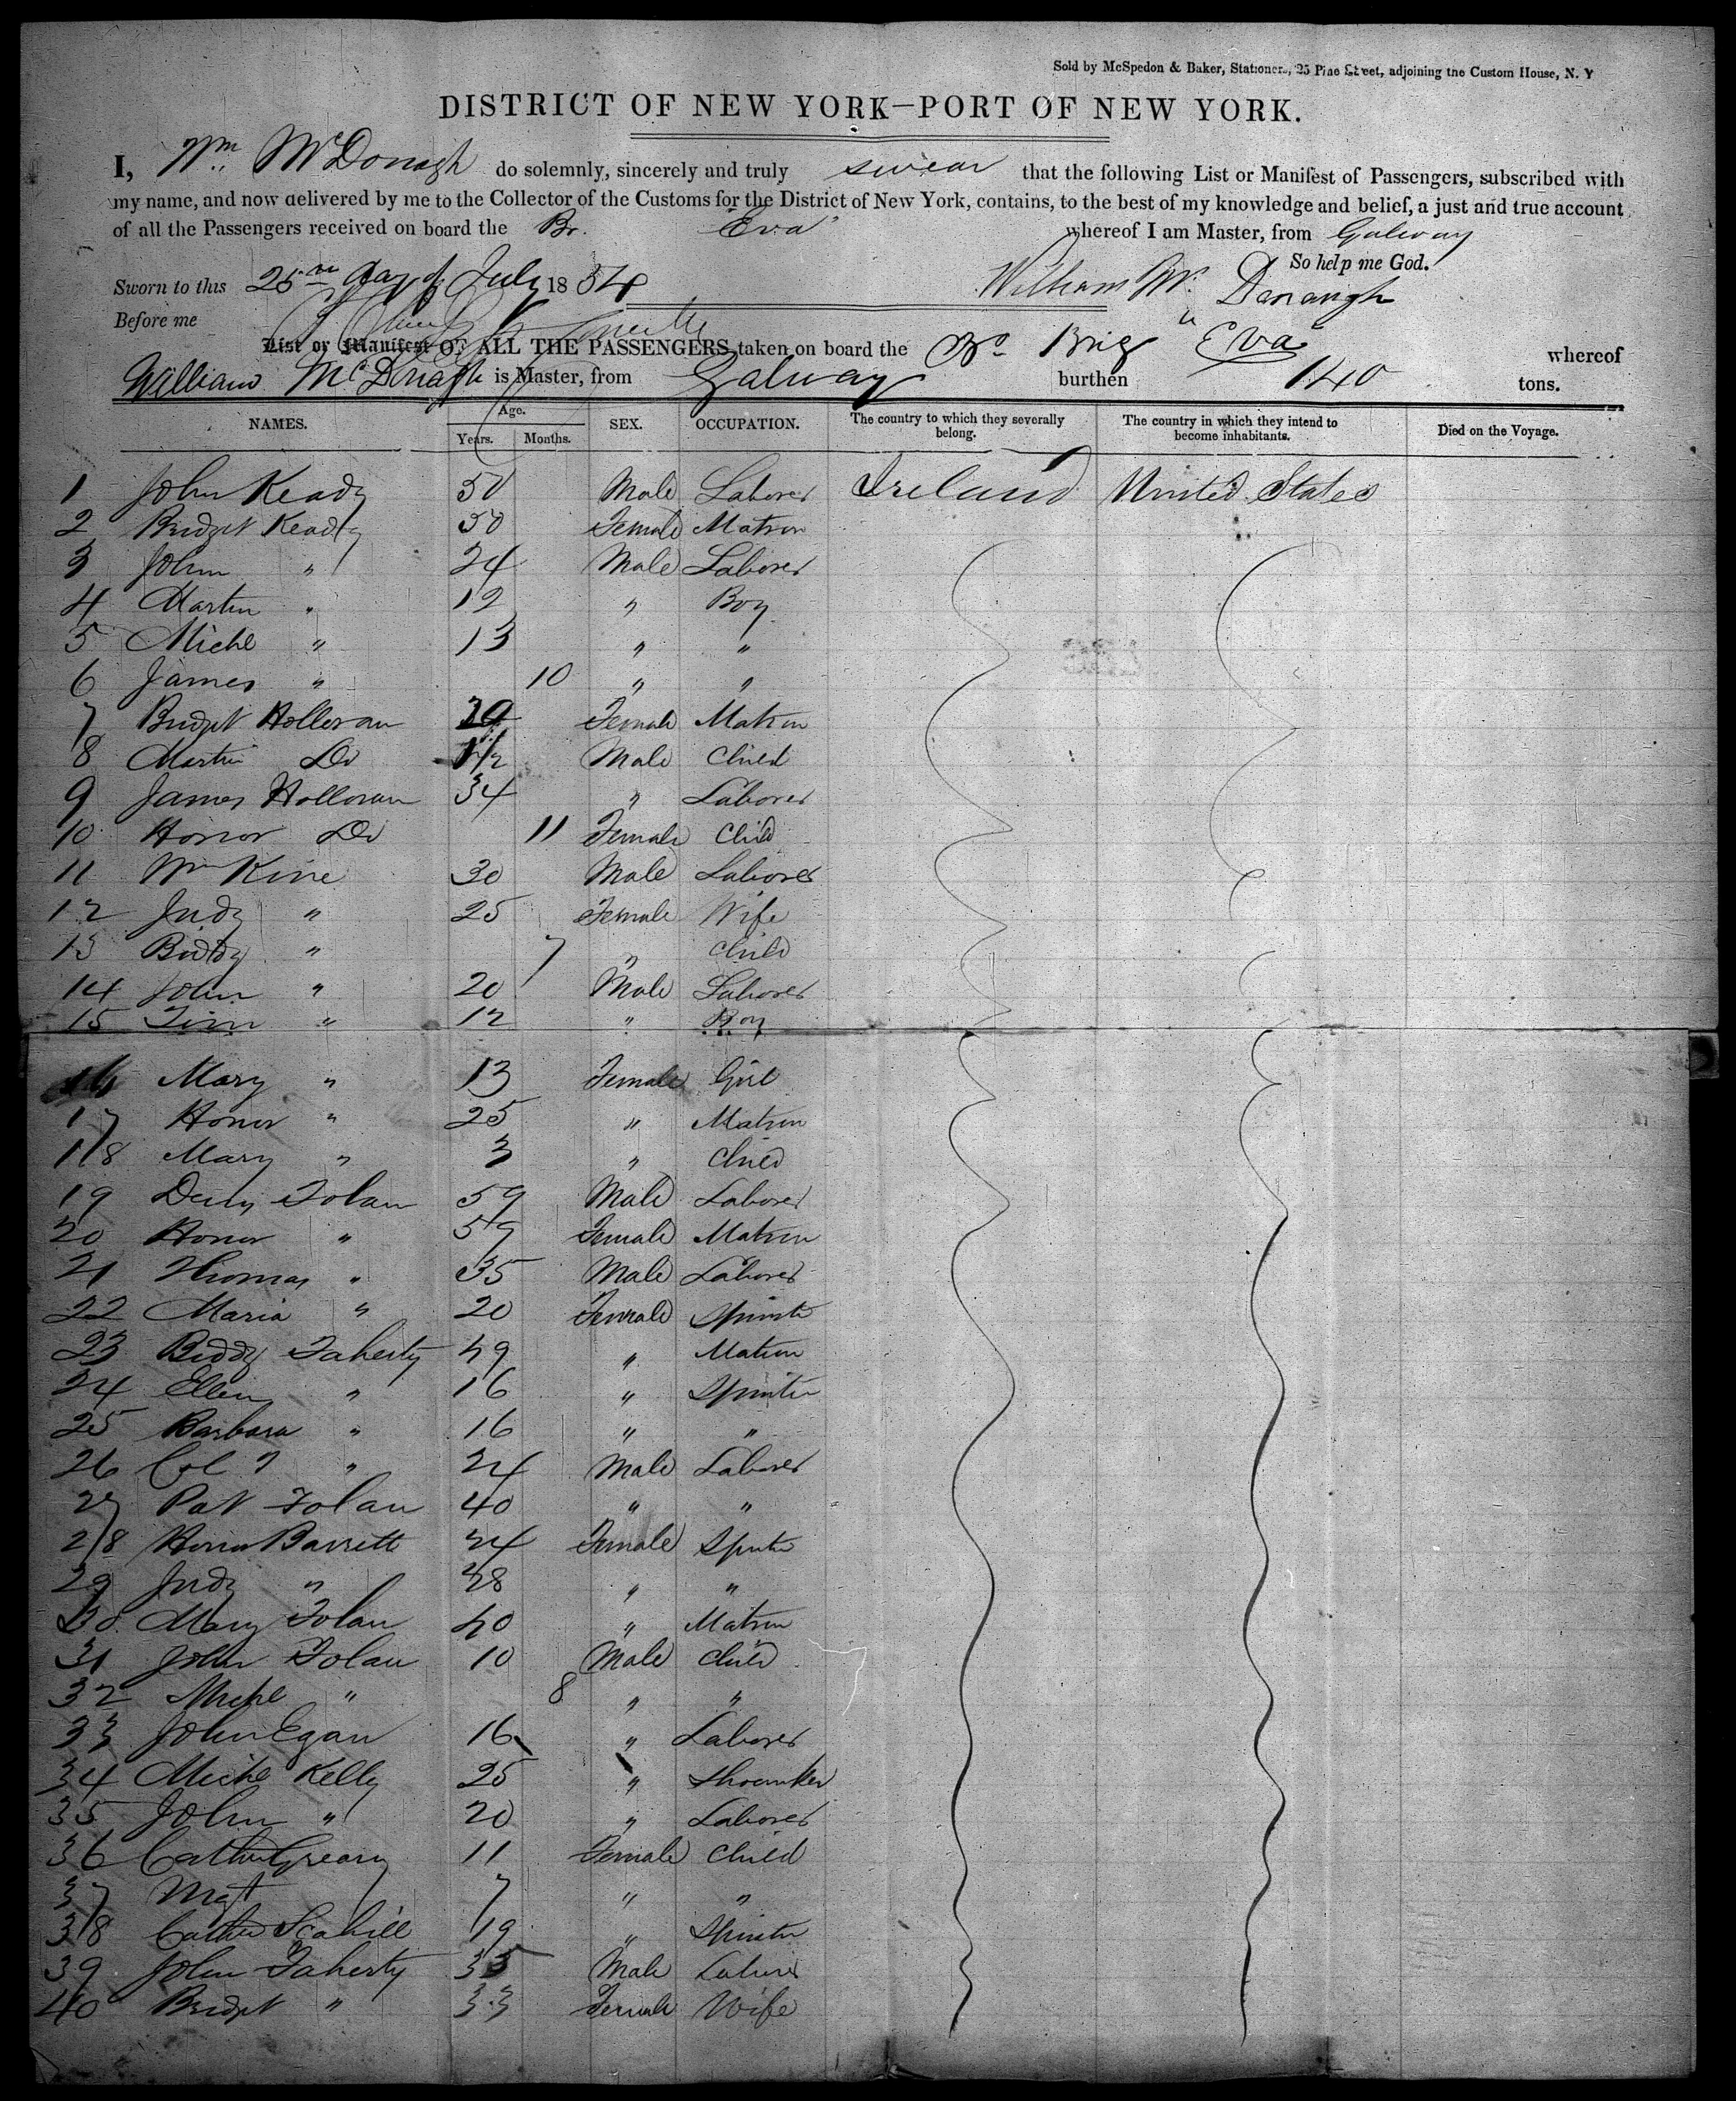 Sold by McSpedon & Baker, Stationers, 25 Pine Street, adjoining the Custom House, N. Y
DISTRICT OF NEW YORK—PORT OF NEW YORK.
I, Wm. McDonagh do solemnly, sincerely and truly swear that the following List or Manifest of Passengers, subscribed with
my name, and now delivered by me to the Collector of the Customs for the District of New York, contains, to the best of my knowledge and belief, a just and true account
of all the Passengers received on board the Br. Eva whereof I am Master, from Galway
So help me God.
Sworn to this 25th day of July 1854 William Mc Donaugh
Before me
List or Manifest OF ALL THE PASSENGERS taken on board the Br. Brig "Eva" whereof
William McDonagh is Master, from Galway burthen 140 tons.
NAMES. Age. Years. Months. SEX. OCCUPATION. The country to which they severally belong. The country in which they intend to become inhabitants. Died on the Voyage.
1 John Keady 50 Male Laborer Ireland United States
2 Bridget Keady 50 Female Matron
3 John " 24 Male Laborer
4 Martin " 12 " Boy
5 Michl " 13 " "
6 James " 10 " "
7 Bridget Holloran 30 Female Matron
8 Martin Do 1 1/2 Male Child
9 James Holloran 34 " Laborer
10 Honor Do 11 Female Child
11 Wm Kine 30 Male Laborer
12 Judy " 25 Female Wife
13 Biddy " 7 " Child
14 John " 20 Male Laborer
15 Tim " 12 " Boy
16 Mary " 13 Female Girl
17 Honor " 25 " Matron
18 Mary " 3 " Child
19 Folan 59 Male Laborer
20 Honor " 59 Female Matron
21 Thomas " 35 Male Laborer
22 Maria " 20 Female Spinster
23 Biddy Faherty 49 " Matron
24 Ellen " 16 " Spinster
25 Barbara " 16 " "
26 " 24 Male Laborer
27 Pat Folan 40 " "
28 Honor Barrett 24 Female Spinster
29 Judy " 28 " "
30 Mary Folan 40 " Matron
31 John Folan 10 Male Child
32 Michl " 8 " "
33 John Egan 16 " Laborer
34 Michl Kelly 25 " Shoemker
35 John " 20 " Laborer
36 Cathe Greary 11 Female Child
37 Mgt 7 " "
38 Cathe Scahill 19 " Spinster
39 John Faherty 35 Male Laborer
40 Bridget " 33 Female Wife